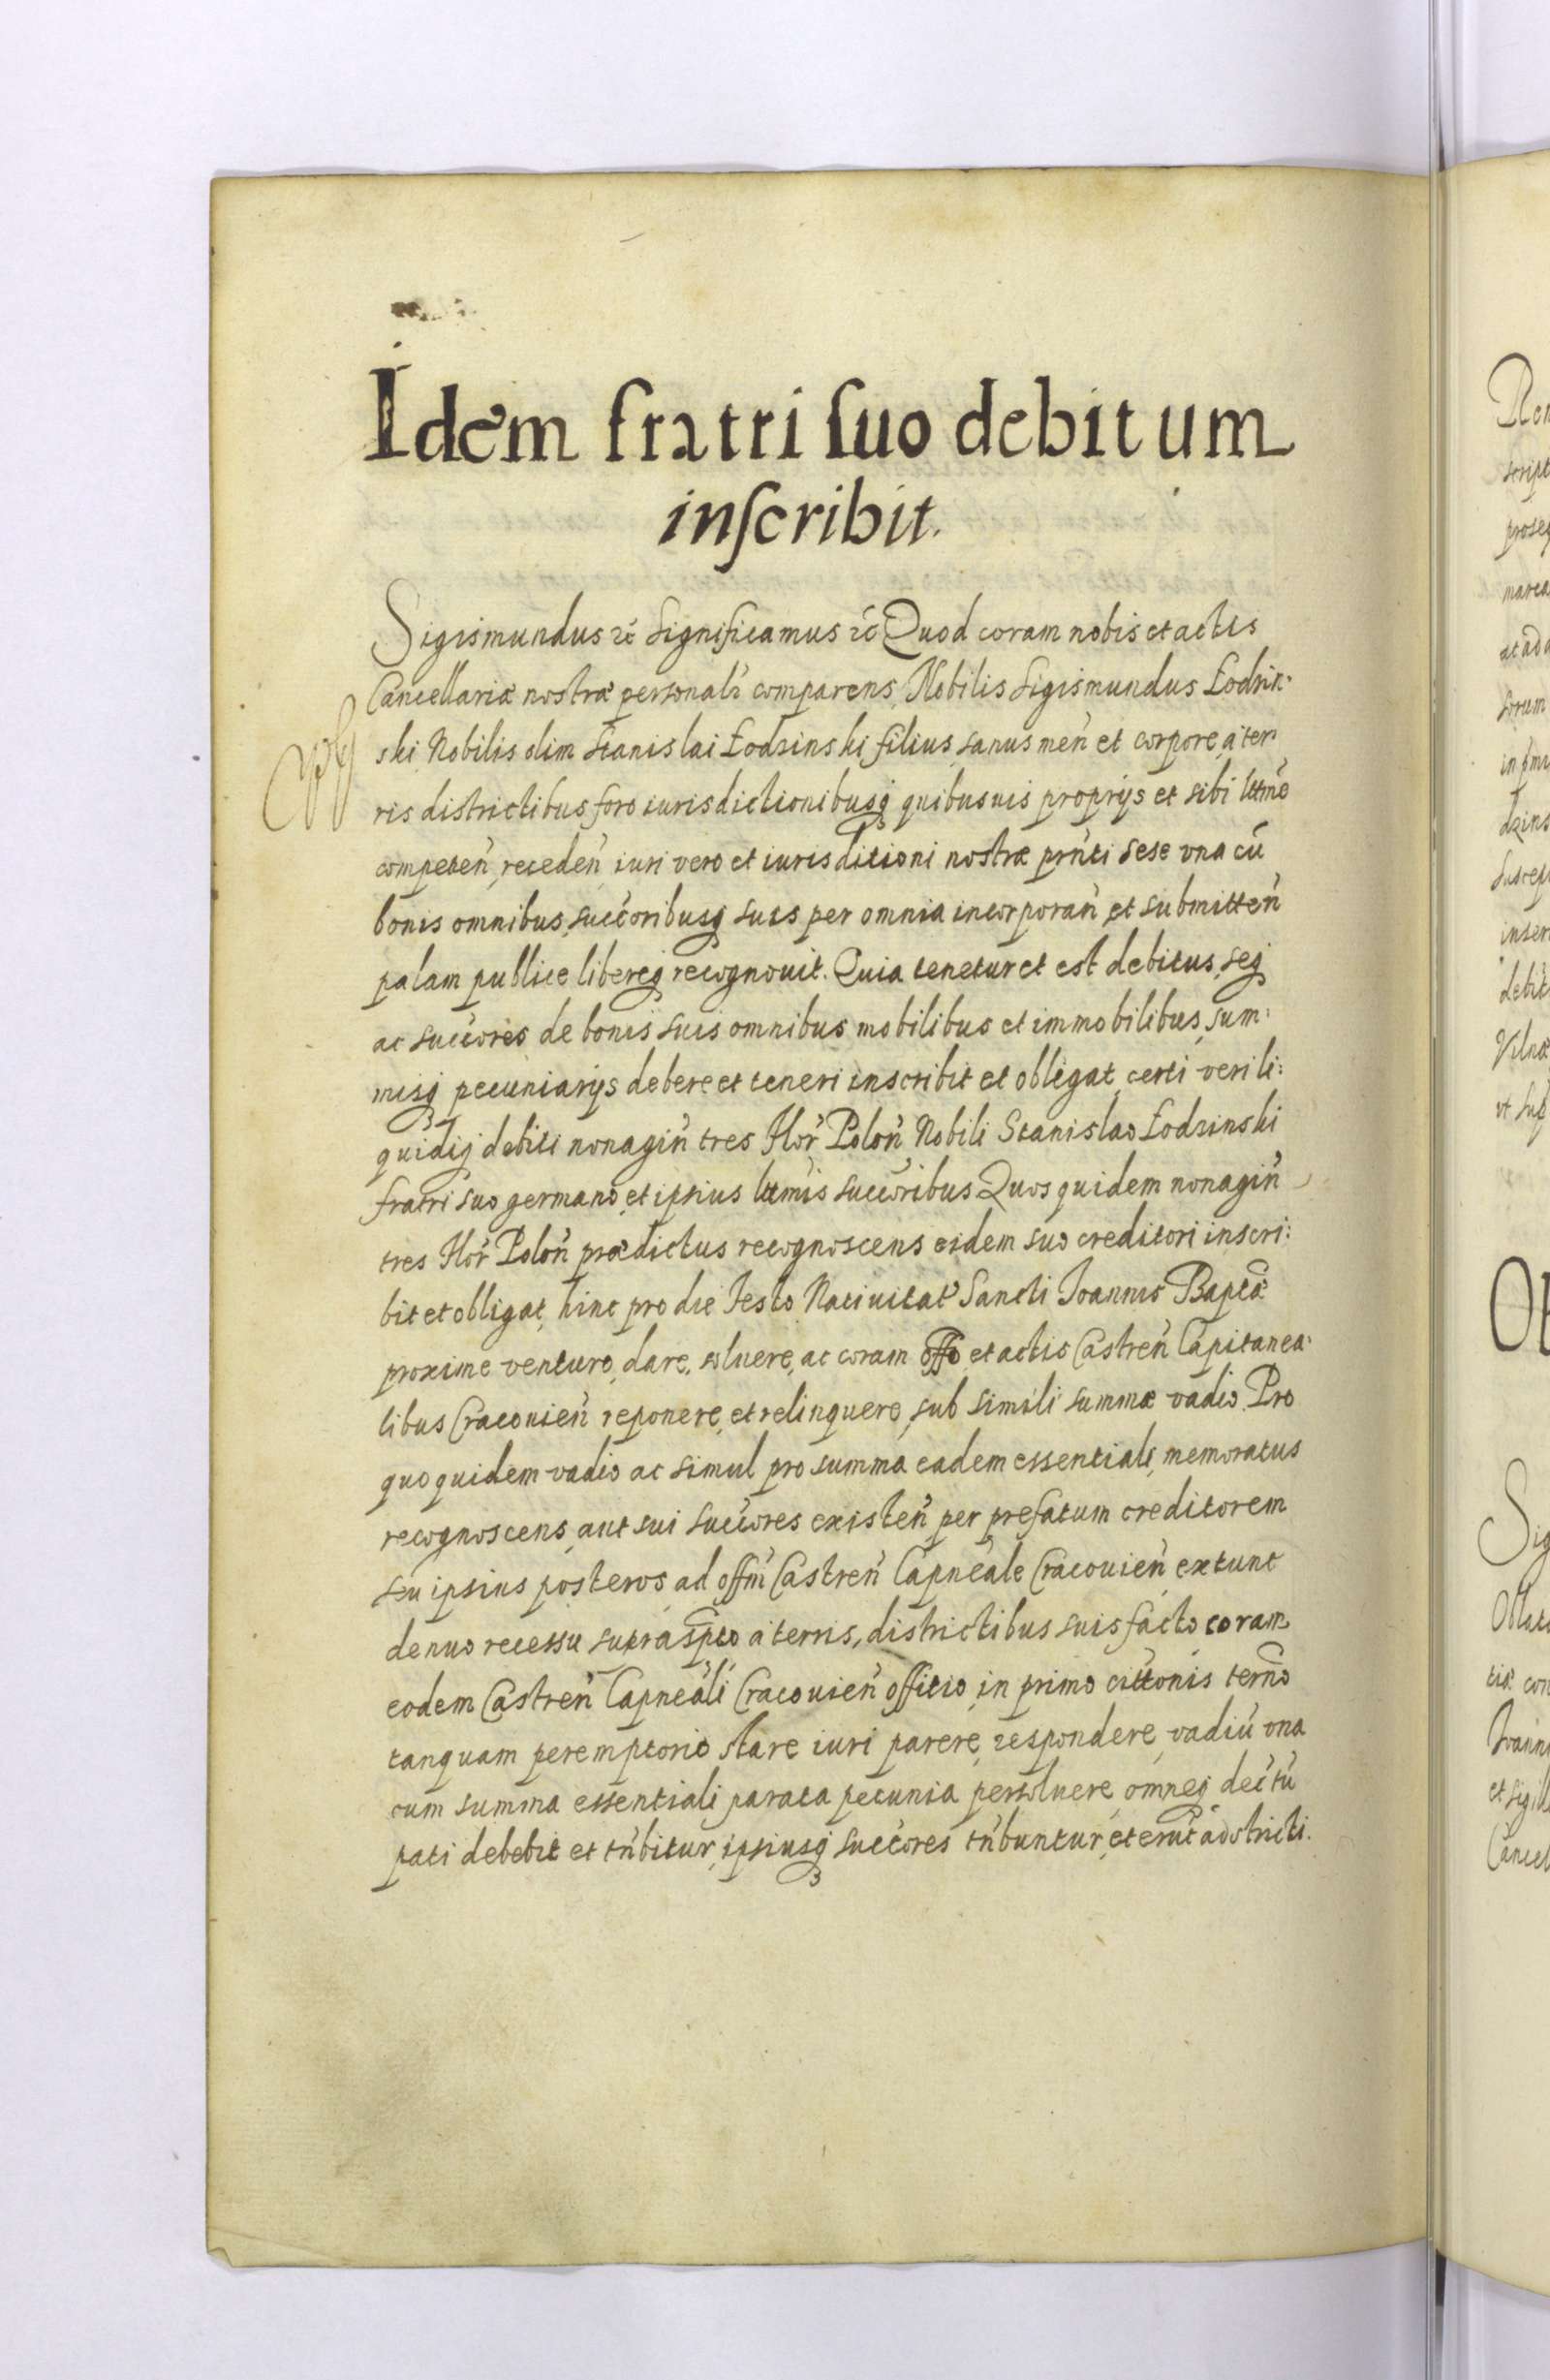 Idem fratri suo debitum
inscribit.
Sigismundus &c̃ Significamus &c̃ Quod coram nobis et actis
Cancellariæ nostræ personalr̃ comparens, Nobilis Sigismundus Łodzin:
ski Nobilis olim Stanislai Łodzinski filius, sanus meñ et corpore, a ter
ris districtibus foro iurisdictionibusq̃ quibusuis proprijs et sibi lttmẽ
competeñ, recedeñ iuri vero et iurisditioni nostræ prñti sese vna cũ
bonis omnibus, succ̃oribusq̃ suis per omnia incorporañ et submitteñ
palam publice libereq̃ recognouit. Quia tenetur et est debitus, seq̃
ac succ̃ores de bonis suis omnibus mobilibus et immobilibus, sum:
misq̃ pecuniarijs debere et teneri inscribit et obligat, certi veri li:
quidiq̃ debiti nonagiñ tres Flor̃ Poloñ, Nobili Stanislao Łodzinski
fratri suo germano, et ipsius lttmis succ̃oribus Quos quidem nonagiñ
tres Flor̃ Poloñ prædictus recognoscens eidem suo creditori inscri:
bit et obligat, hinc pro die festo Natiuitat̃ Sancti Joannis Baptæ̃
proxime venturo, dare, soluere, ac coram offo et actis Castreñ Capitanea:
libus Cracouieñ reponere, et relinquere, sub simili summæ vadio. Pro
quo quidem vadio ac simul pro summa eadem essentiali, memoratus
recognoscens, aut sui succ̃ores existeñ per prefatum creditorem
seu ipsius posteros ad offm̃ Castreñ Capneãle Cracouieñ extunc
denuo recessu suprasp̃to a terris, districtibus suis facto coram
eodem Castreñ Capneãli Cracouieñ officio, in primo citt̃onis termño
tanquam peremptorio stare iuri parere, respondere, vadiũ vna
cum summa essentiali parata pecunia persoluere, omneq̃ dec̃tũ
pati debebit et tñbitur, ipsiusq̃ succ̃ores tñbuntur, et erũt adstricti.